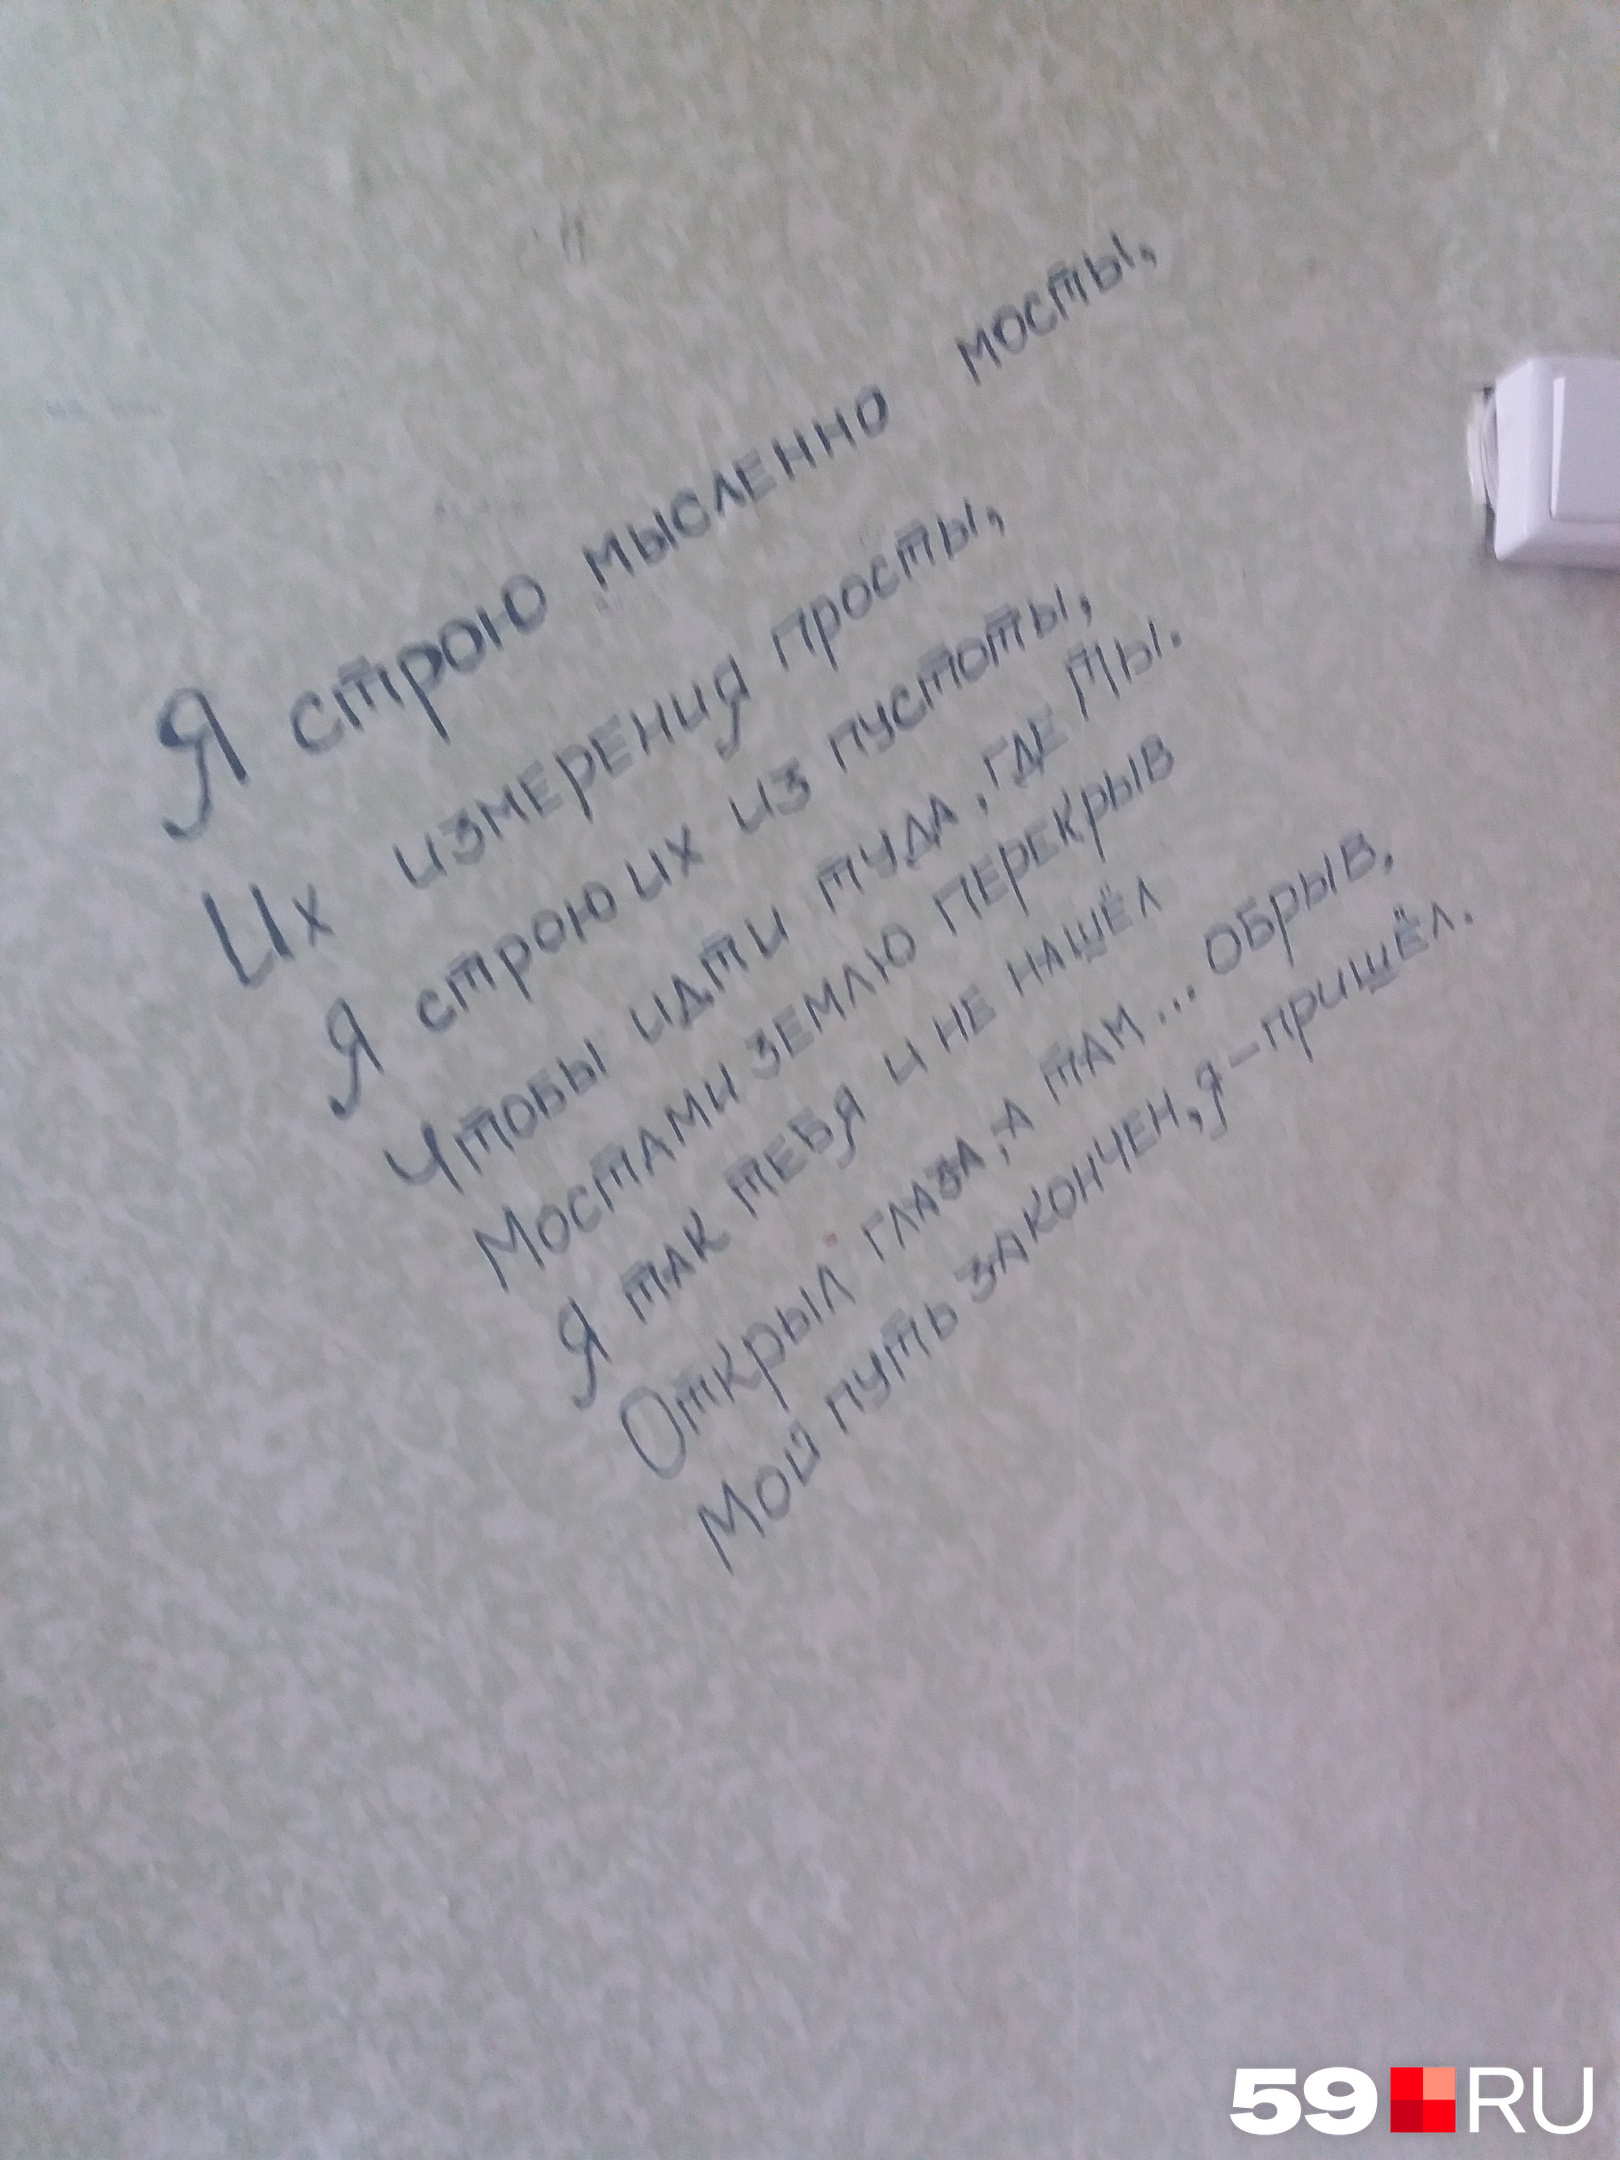 Я строю мысленно мосты,
Их измерения просты,
Я строю их из пустоты,
Чтобы идти туда, где ты.
Мостами землю перекрыв
Я так тебя и не нашёл
Открыл глаза, а там... обрыв,
Мой путь закончен, я - пришёл.
59 RU